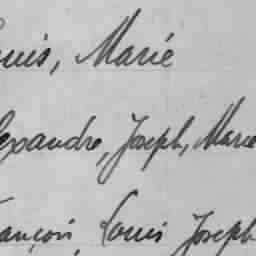 ouis, Marie
lexandre, Joseph, Marie
rançois, Louis Joseph